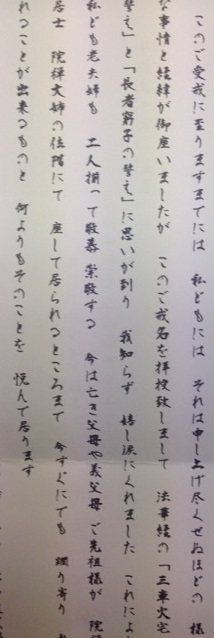 このご受戒に至りますまでには　私どもには　それは申し上げ尽くせぬほどの　様
な事情と経緯が御座いましたが　このご戒名を拝授致しまして　法華経の「三車火宅
譬え」と「長者窮子の譬え」に思いが到り　我知らず　嬉し涙にくれました　これによ
私ども老夫婦も　二人揃って敬慕崇敬する　今は亡き父母や義父母　ご先祖様が　院禅
居士　院禅大姉の位階にて　座して居られるところまで　今すぐにでも　躙り寄り
れることが出来るものと　何よりもそのことを　悦んで居ります